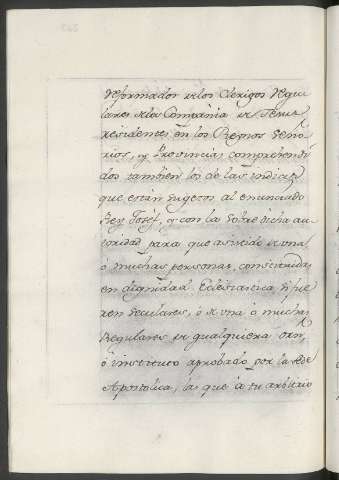 reformador de los Clerigos Regu
lares de la Compañia de Jesus
residentes en los Reynos Seño
rios, y Provincias comprehendi
dos tambien los de las Indias
que estan sugetos al enunciado
Rey Josef, y con la sobredicha au
toridad para que asistido de una
ó muchas personas constituidas
en dignidad Eclesiastica, si fue
ren seculares, ó de una ó muchas
Regulares de qualquiera orn,
ó instituto aprobado por la sede
Apostolica, las que á su arbitrio